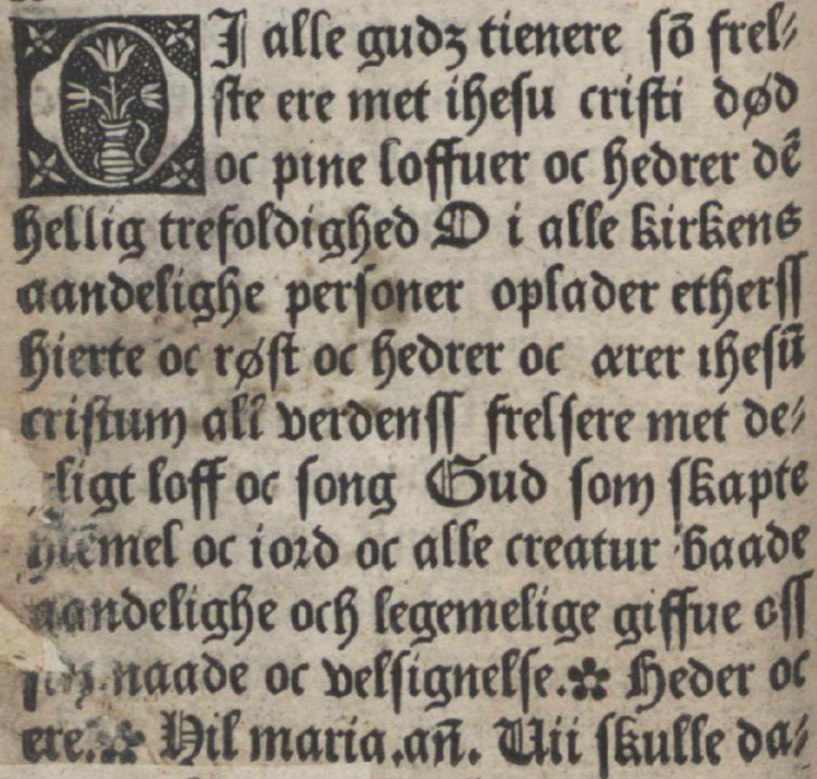 OJ alle gudz tienere sō frel⸗
ste ere met ihesu cristi død
oc pine loffuer oc hedrer dē
hellig trefoldighed O i alle kirkens
aandelighe personer oplader etherss
hierte oc røst oc hedrer oc ærer ihesū
cristum all verdenss frelsere met de⸗
ligt loff oc song Gud som skapte
hiēmel oc iord oc alle creatur baade
aandelighe och legemelige giffue oss
naade oc velsignelse.✿ Heder oc
ere.✿ Hil maria.an̄. Uii skulle da⸗